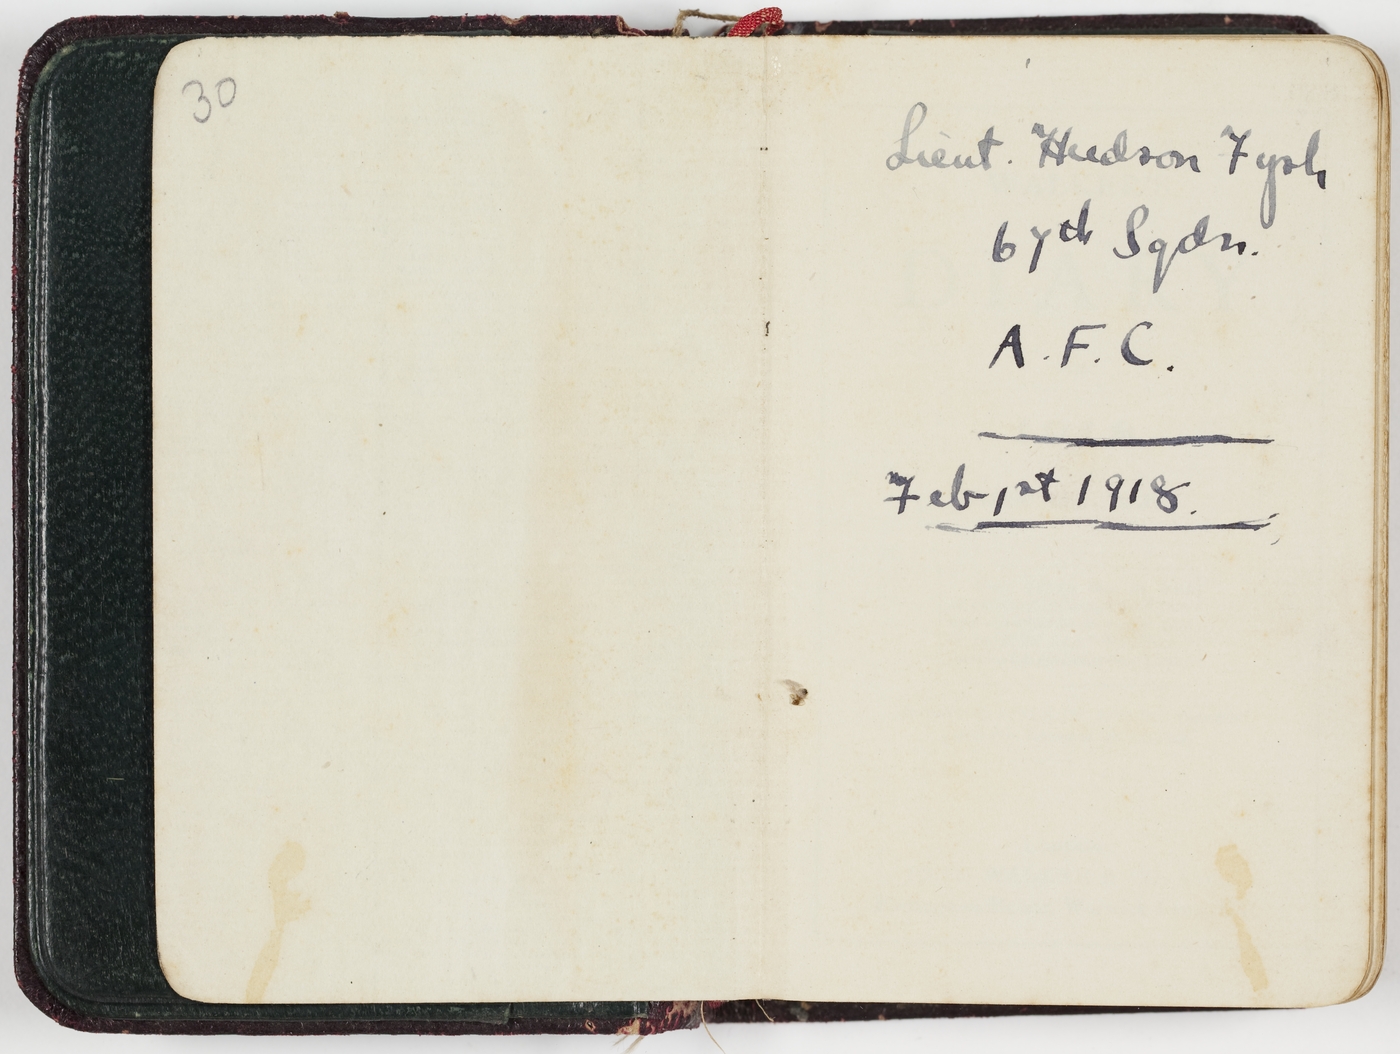 30
Lieut. Hudson Fysh
67th Sqdn.
A.F.C.
Feb 1st 1918.